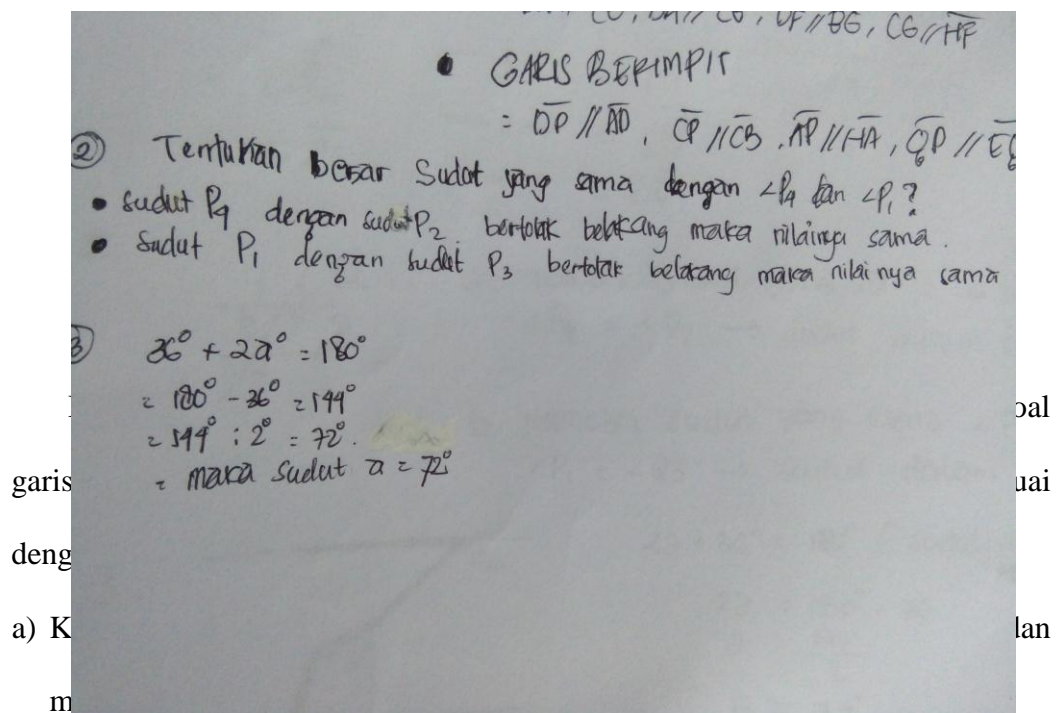 CG // HF
• GARIS BERIMPIT
= DP // AD, CP // CB, AP // HA, QP //
② Tentukan besar Sudut yang sama dengan ∠P4 dan ∠P1?
• sudut P4 dengan sudut P2 bertolak belakang maka nilainya sama.
• Sudut P1 dengan sudut P3 bertolak belakang maka nilainya sama
3 36° + 2a° = 180°
= 180° - 36° = 144°
= 144° : 2° = 72°.
= maka sudut a = 72°
oal
garis uai
deng
a) K dan
m